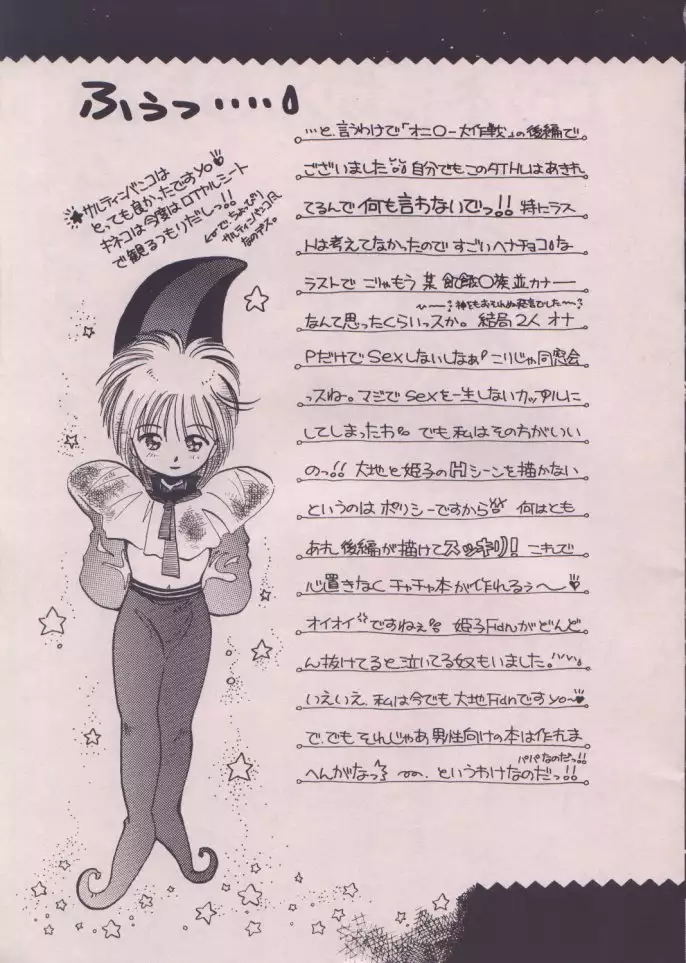 ふぅっ・・・・
サルティンバンコは
とっても良かったですyo♥
キネコは今度はロイヤルシート
で観るつもりだしっ!!
で、ちょっぴり
サルティンバンコ風
なのデス。
…と、言うわけで「オニ〇ー大作戦」の後編で
ございました 自分でもこのTAIHLはあきれ
てるんで何も言わないでっ!! 特にラス
トは考えてなかったので すごいヘナチョコな
ラストで ごりゃもう 某 飢餓〇族並カナー
〜神をもおそれぬ発言でした〜
なんて思ったくらいっスか。 結局2人 オナ
PだけでSexしないしなぁ こりじゃ同窓会
っスね。マジでsexを一生しないカップルに
してしまったわ でも私はその方がいい
のっ!! 大地と姫子のHシーンを描かない
というのは ポリシーですから 何はとも
あれ後編が描けてスッキリ! これで
心置きなくチャチャ本が作れるぅ〜♥
オイオイですねぇ 姫子Fanがどんど
ん抜けてると泣いてる奴もいました。
いえいえ、私は今でも大地Fanですyo〜♥
で、でもそれじゃあ男性向けの本は作れま
へんがなっ というわけなのだっ!!
パパなのだっ!!